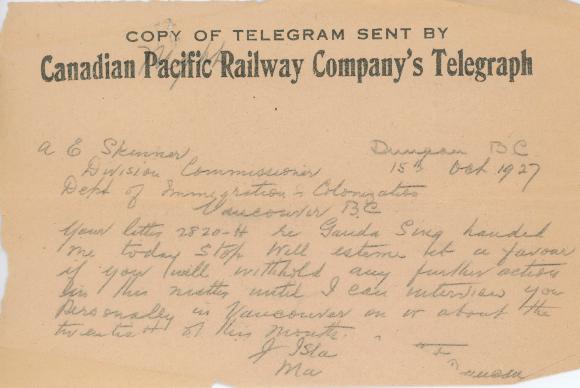 COPY OF TELEGRAM SENT BY
Canadian Pacific Railway Company's Telegraph
A E Skinner
Duncan B.C.
Division Commissioner
15th Oct 1927
Dept of Immigration & Colonization
Vancouver B.C.
Your letter 2820-H re Ganda Sing handed
me today Stop Will esteem it a favour
if you will withhold any further action
in this matter until I can interview you
Personally in Vancouver on or about the
twentieth of this month.
J Isla
Ma
Duncan